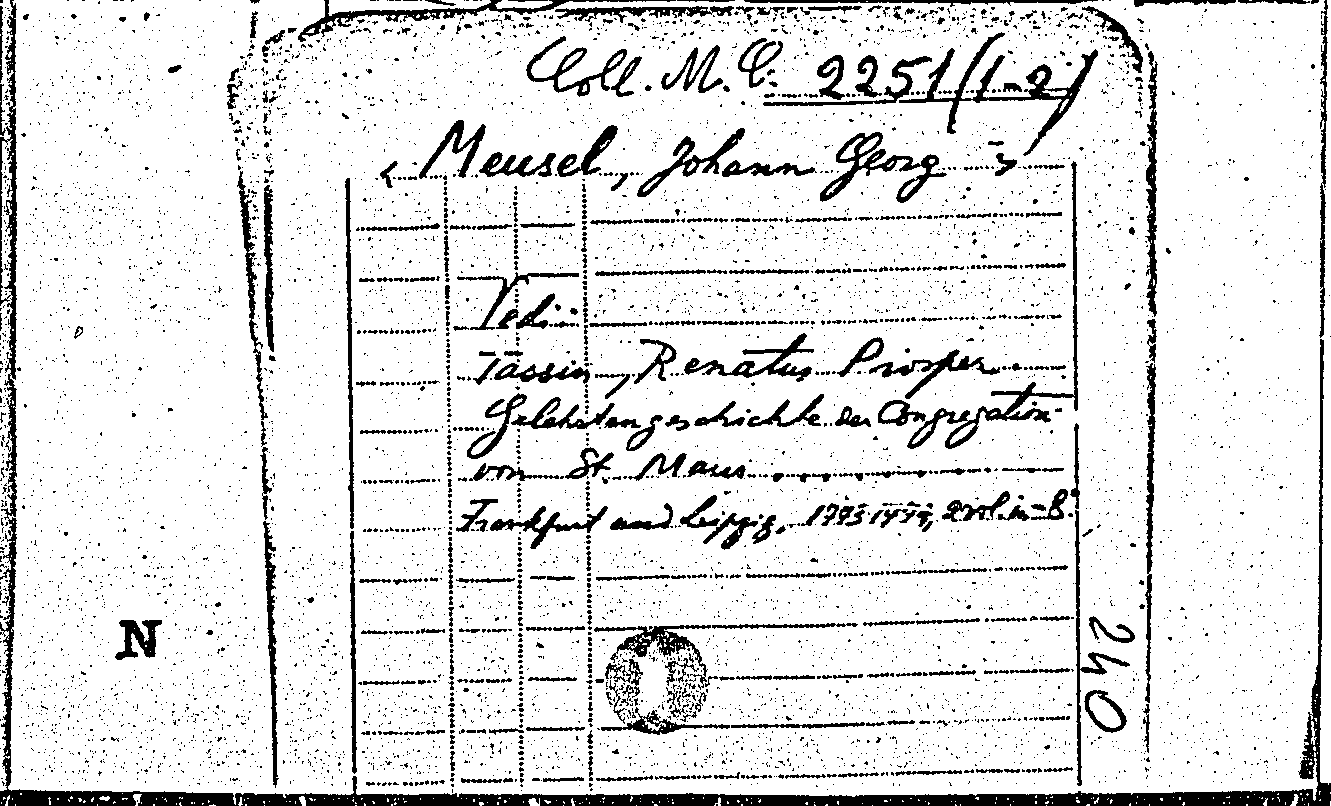 Coll. M. C. 2251/(1-2)
< Meusel, Johann Georg >
Vedi:
Tassin, Renatus Prosper.
Gelehrtengeschichte der Congregation
von St. Maur . . . . . . . .
Frankfurt und Leipzig, 2 vol. in-8º.
N
240